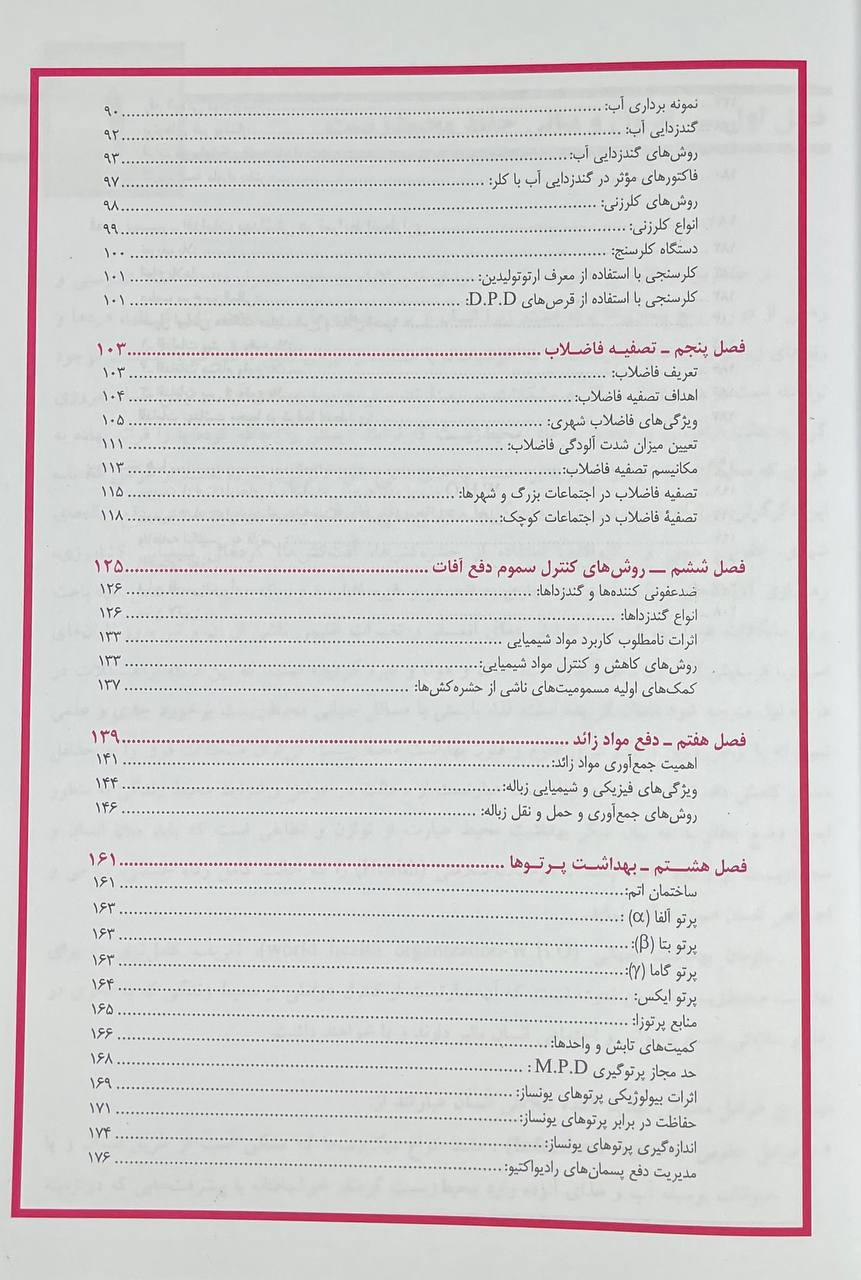 نمونه برداری آب: ۹۰
گندزدایی آب: ۹۲
روش‌های گندزدایی آب: ۹۳
فاکتورهای مؤثر در گندزدایی آب با کلر: ۹۷
روش‌های کلرزنی: ۹۸
انواع کلرزنی: ۹۹
دستگاه کلرسنج: ۱۰۰
کلرسنجی با استفاده از معرف ارتوتولیدین: ۱۰۱
کلرسنجی با استفاده از قرص‌های D.P.D: ۱۰۱
فصل پنجم ـ تصفیه فاضلاب ۱۰۳
تعریف فاضلاب: ۱۰۳
اهداف تصفیه فاضلاب: ۱۰۴
ویژگی‌های فاضلاب شهری: ۱۰۵
تعیین میزان شدت آلودگی فاضلاب: ۱۱۱
مکانیسم تصفیه فاضلاب: ۱۱۳
تصفیه فاضلاب در اجتماعات بزرگ و شهرها: ۱۱۵
تصفیهٔ فاضلاب در اجتماعات کوچک: ۱۱۸
فصل ششم ـ روش‌های کنترل سموم دفع آفات ۱۲۵
ضدعفونی کننده‌ها و گندزداها: ۱۲۶
انواع گندزداها: ۱۲۶
اثرات نامطلوب کاربرد مواد شیمیایی ۱۳۳
روش‌های کاهش و کنترل مواد شیمیایی: ۱۳۳
کمک‌های اولیه مسمومیت‌های ناشی از حشره‌کش‌ها: ۱۳۷
فصل هفتم ـ دفع مواد زائد ۱۳۹
اهمیت جمع‌آوری مواد زائد: ۱۴۱
ویژگی‌های فیزیکی و شیمیایی زباله: ۱۴۴
روش‌های جمع‌آوری و حمل و نقل زباله: ۱۴۶
فصل هشتم ـ بهداشت پرتوها ۱۶۱
ساختمان اتم: ۱۶۱
پرتو آلفا (α): ۱۶۳
پرتو بتا (β): ۱۶۳
پرتو گاما (γ): ۱۶۳
پرتو ایکس: ۱۶۴
منابع پرتوزا: ۱۶۵
کمیت‌های تابش و واحدها: ۱۶۶
حد مجاز پرتوگیری M.P.D: ۱۶۸
اثرات بیولوژیکی پرتوهای یونساز: ۱۶۹
حفاظت در برابر پرتوهای یونساز: ۱۷۱
اندازه‌گیری پرتوهای یونساز: ۱۷۴
مدیریت دفع پسمان‌های رادیواکتیو: ۱۷۶